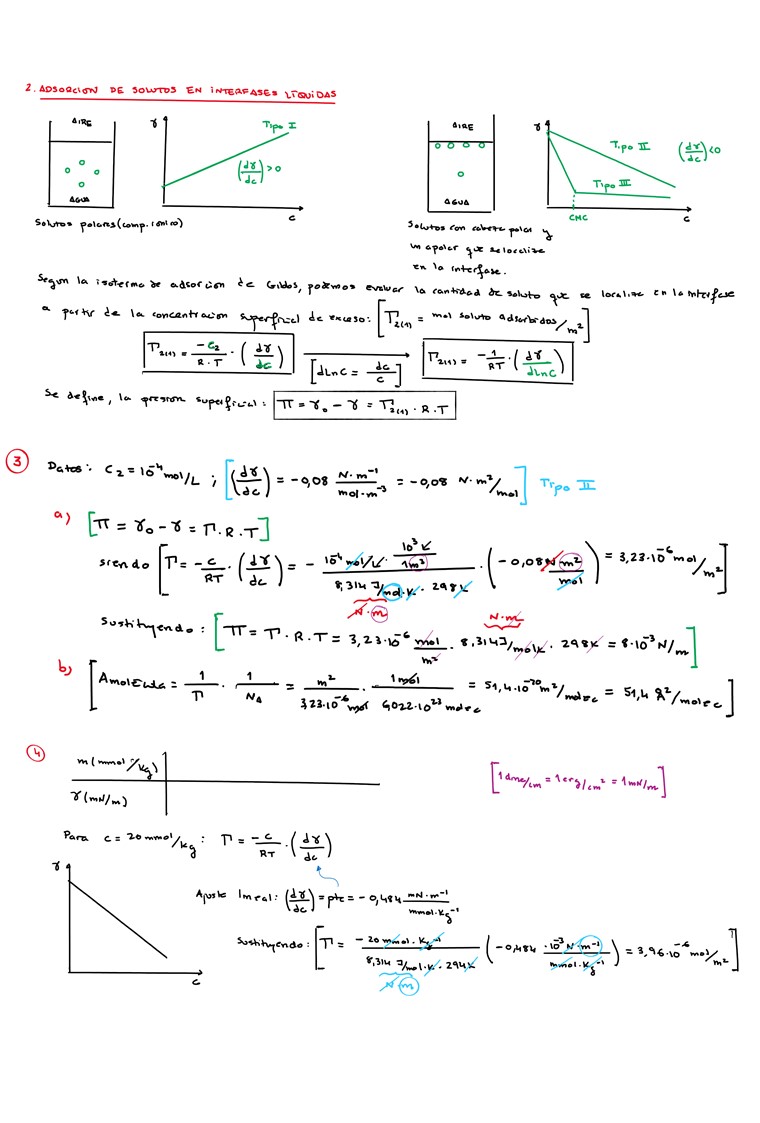 2. ADSORCIÓN DE SOLUTOS EN INTERFASES LÍQUIDAS
AIRE
AGUA
γ
Tipo I
(dγ/dc) > 0
c
Solutos polares (comp. iónico)
AIRE
AGUA
γ
Tipo II
(dγ/dc) < 0
Tipo III
CMC
c
Solutos con cabeza polar y
un apolar que se localiza
en la interfase.
Según la isoterma de adsorción de Gibbs, podemos evaluar la cantidad de soluto que se localiza en la interfase
a partir de la concentración superficial de exceso: [Γ2(1) = mol soluto adsorbidos/m²]
Γ2(1) = -C2/R·T · (dγ/dc) [dLnC = dc/c] Γ2(1) = -1/RT · (dγ/dLnC)
Se define, la presión superficial: Π = γ₀ - γ = Γ2(1) · R · T
3 Datos: C2 = 10⁻⁴ mol/L ; [(dγ/dc) = -0,08 N·m⁻¹/mol·m⁻³ = -0,08 N·m²/mol] Tipo II
a) [Π = γ₀ - γ = Γ·R·T]
siendo [Γ = -c/RT · (dγ/dc) = - 10⁻⁴ mol/L · 10³ L/1m³ / 8,314 J/mol·K · 298K · (-0,08 N m²/mol) = 3,23·10⁻⁶ mol/m²]
N·m
Sustituyendo: [Π = Γ·R·T = 3,23·10⁻⁶ mol/m² · 8,314 J/molK · 298K = 8·10⁻³ N/m]
N·m
b) [Amolécula = 1/Γ · 1/NA = m²/3,23·10⁻⁶ mol · 1mol/6,022·10²³ molec = 51,4·10⁻²⁰ m²/molec = 51,4 Å²/molec]
4 m (mmol/kg)
γ (mN/m)
[1 dina/cm = 1 erg/cm² = 1 mN/m]
Para c = 20 mmol/kg: Γ = -c/RT · (dγ/dc)
γ
c
Ajuste lineal: (dγ/dc) = pte = -0,484 mN·m⁻¹/mmol·kg⁻¹
Sustituyendo: [Γ = -20 mmol·kg⁻¹ / 8,314 J/mol·K · 294K (-0,484 · 10⁻³ N·m⁻¹/mmol·kg⁻¹) = 3,96·10⁻⁶ mol/m²]
N·m